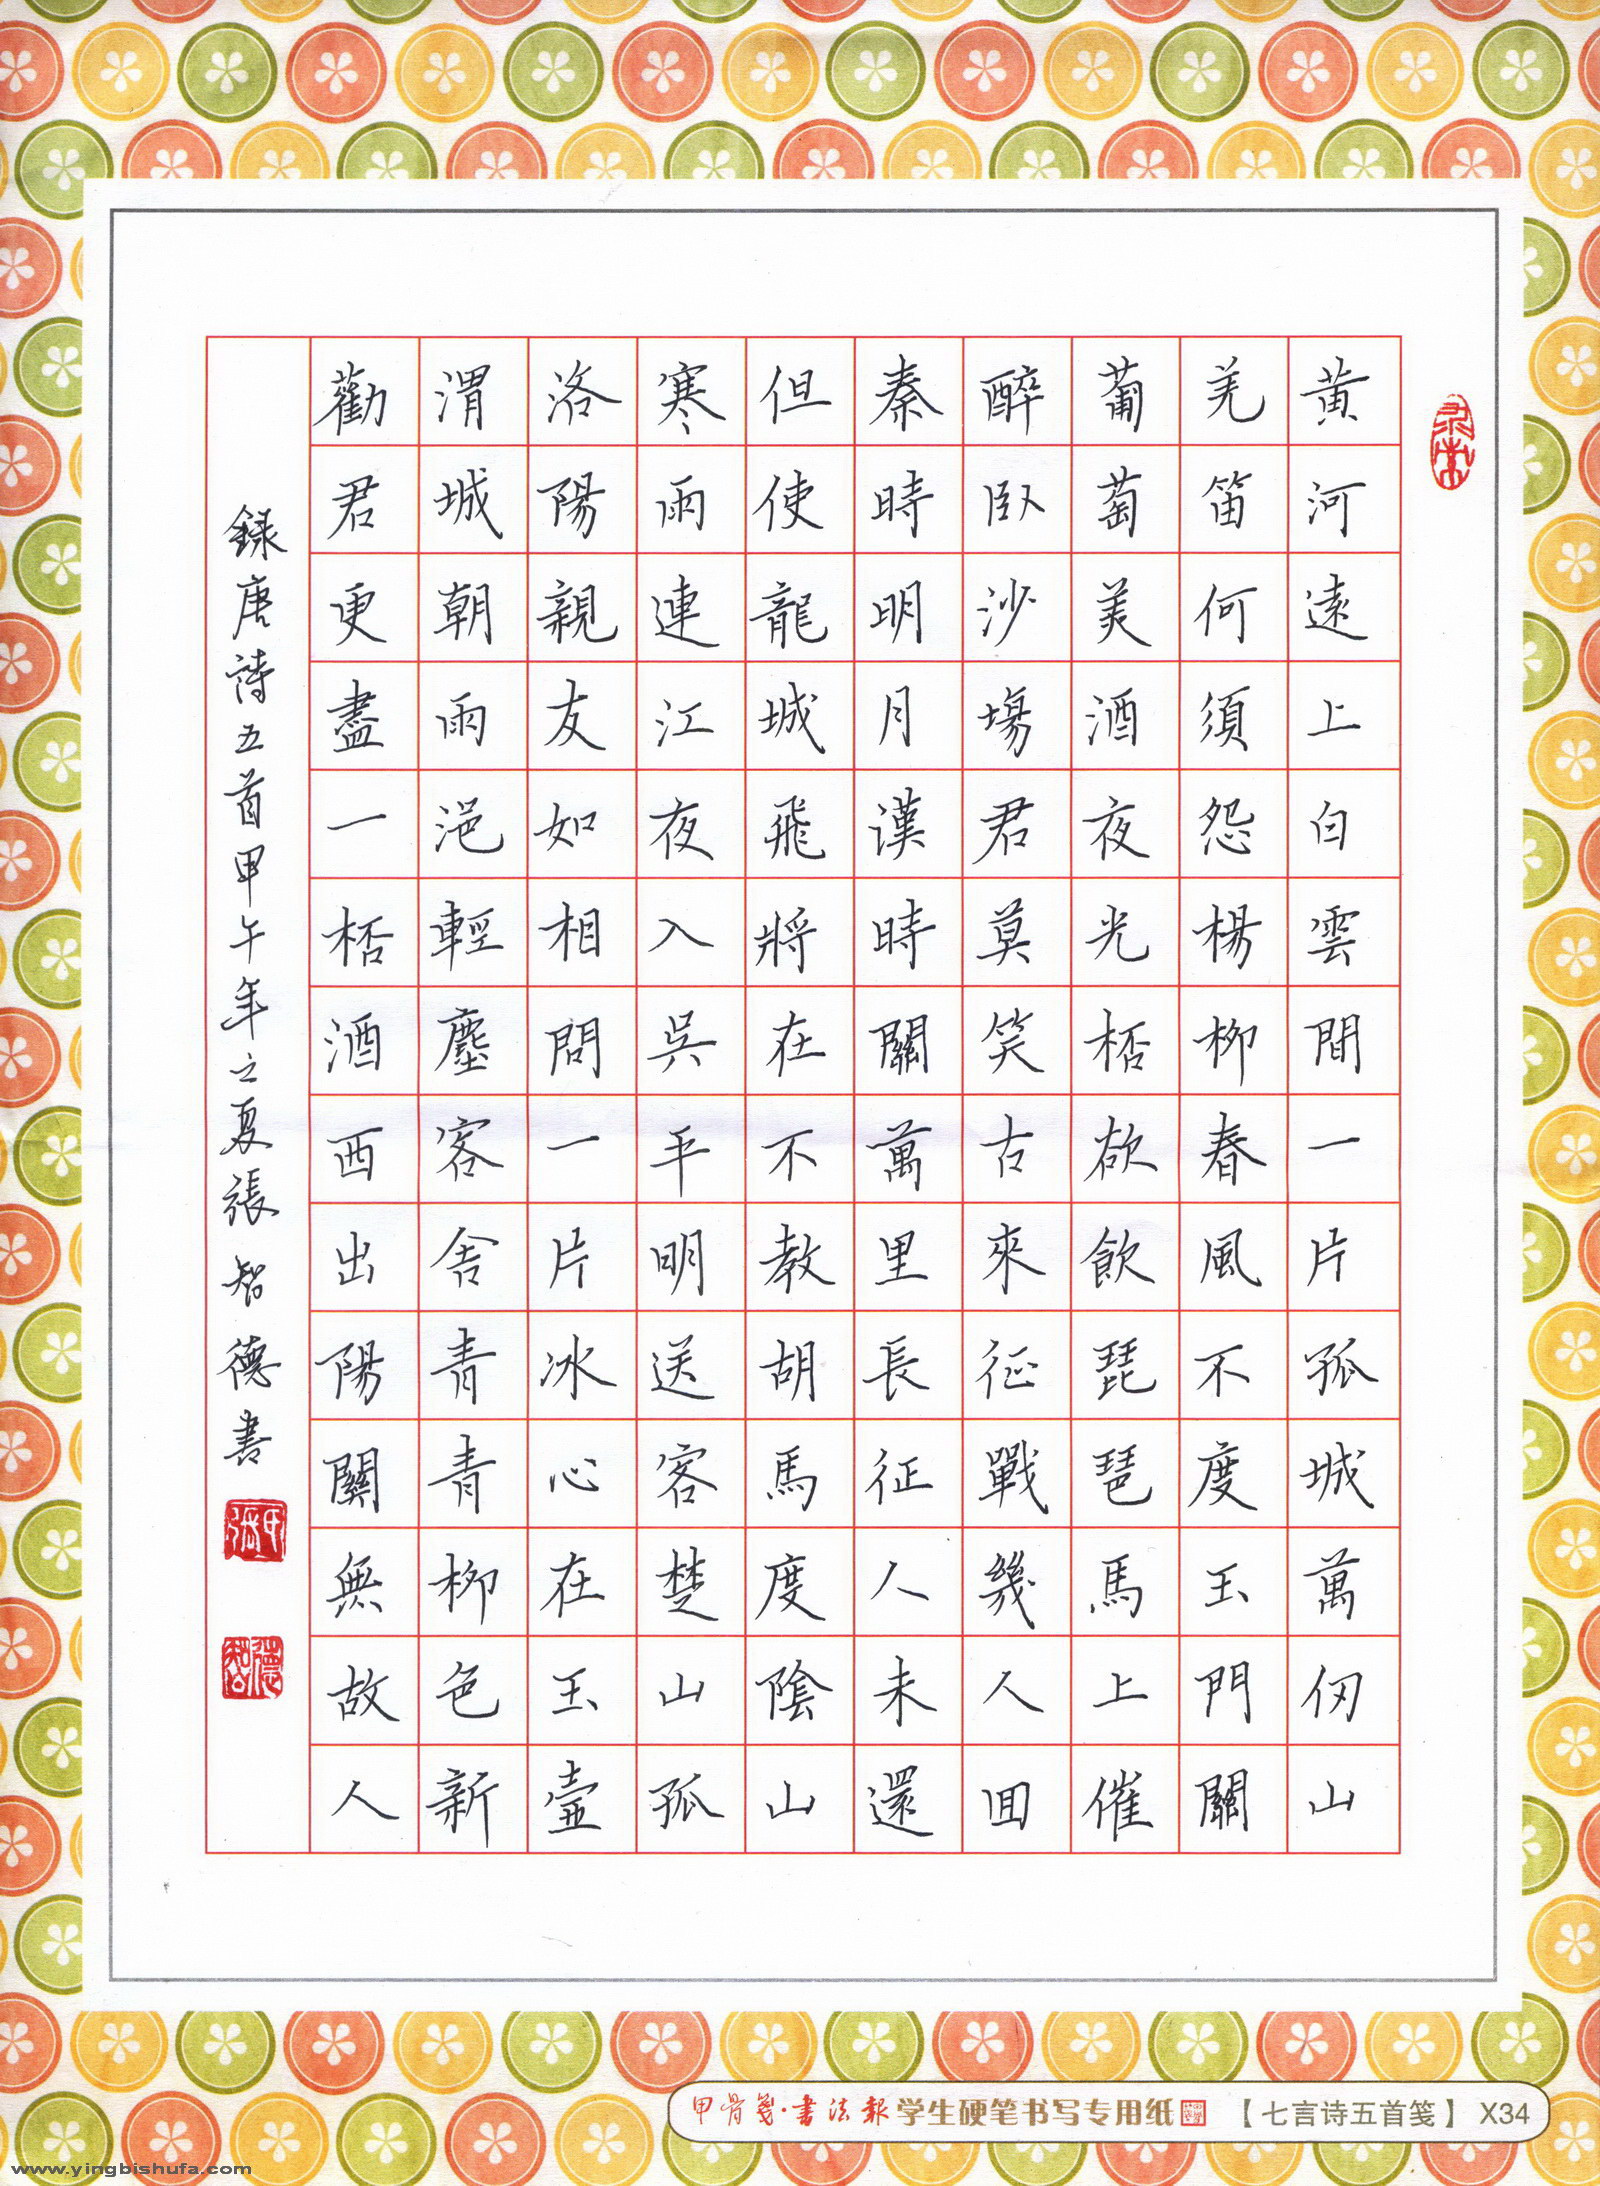 黃河遠上白雲間一片孤城萬仞山
羌笛何須怨楊柳春風不度玉門關
葡萄美酒夜光桮欲飲琵琶馬上催
醉臥沙場君莫笑古來征戰幾人回
秦時明月漢時關萬里長征人未還
但使龍城飛將在不教胡馬度陰山
寒雨連江夜入吳平明送客楚山孤
洛陽親友如相問一片冰心在玉壺
渭城朝雨浥輕塵客舍青青柳色新
勸君更盡一桮酒西出陽關無故人
録唐詩五首甲午年之夏張智德書
張氏
智德
甲骨笺·書法報学生硬笔书写专用纸【七言诗五首笺】X34
www.yingbishufa.com